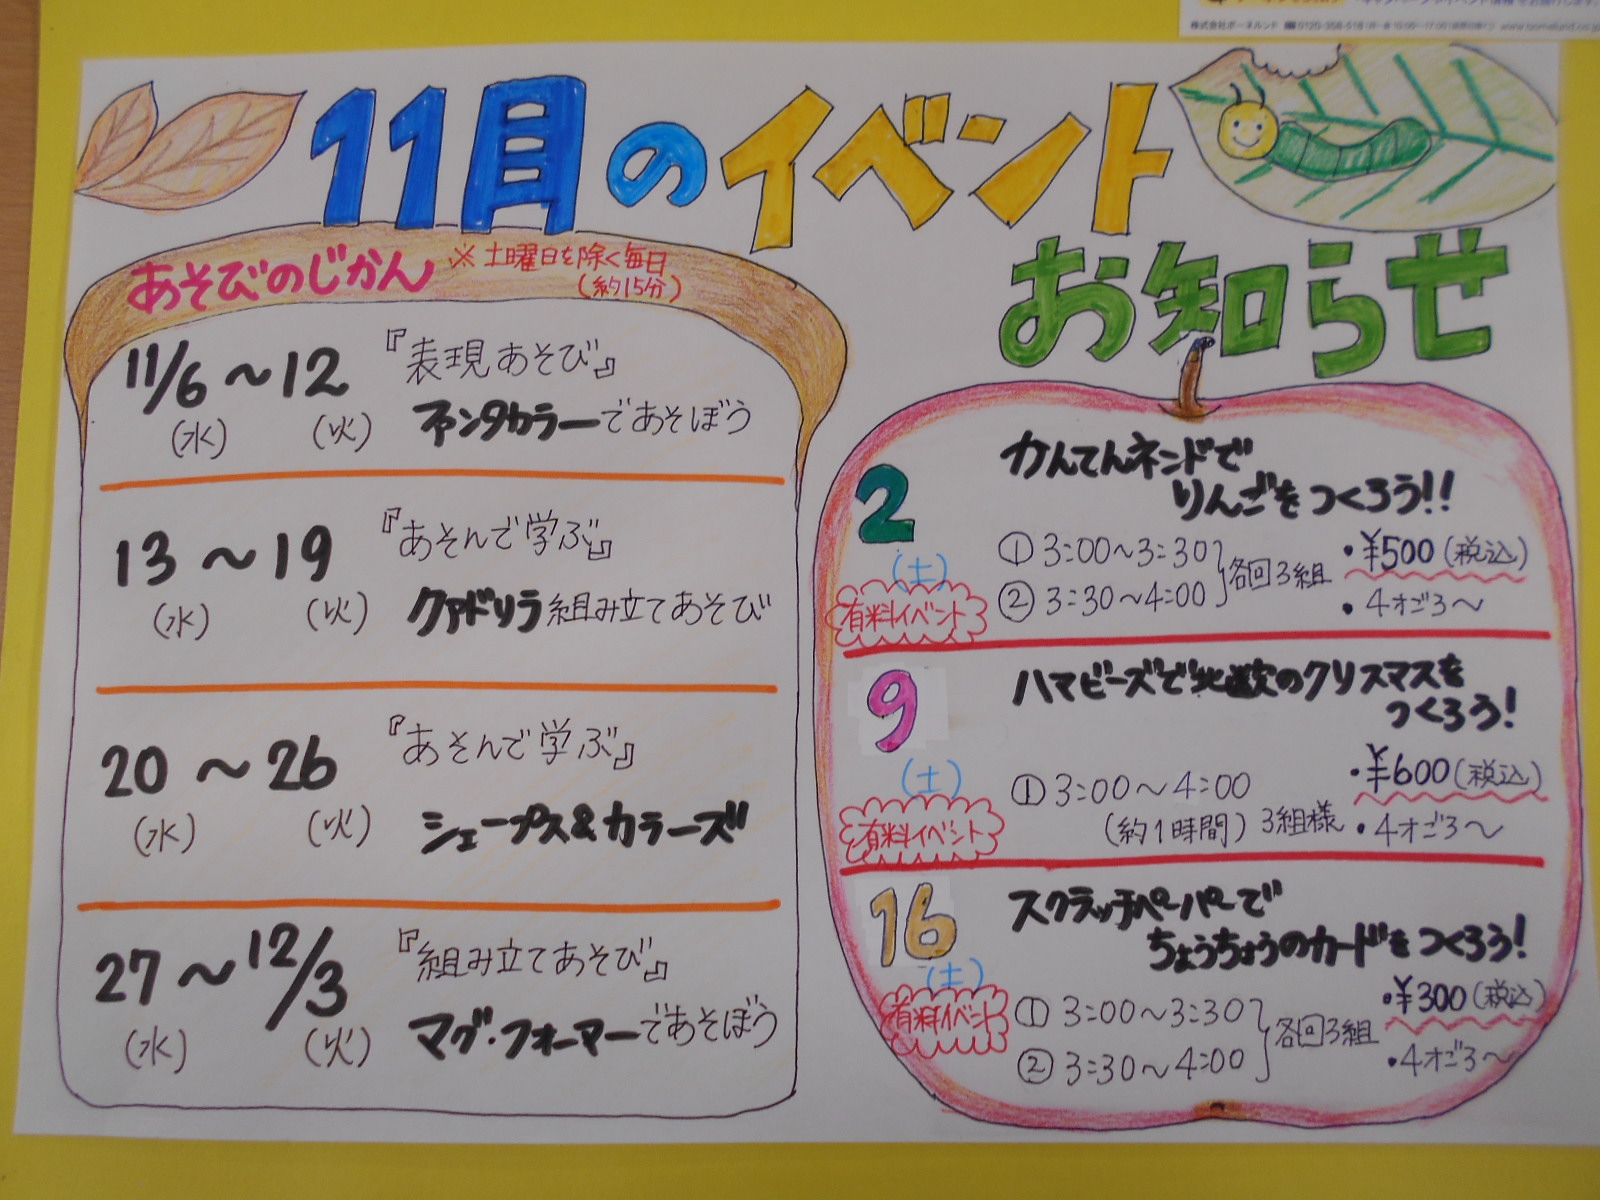 株式会社ボーネルンド
11月のイベント
お知らせ
あそびのじかん ※土曜日を除く毎日
(約15分)
11/6～12 『表現あそび』
(水) (火) ファンタカラーであそぼう
13～19 『あそんで学ぶ』
(水) (火) クアドリラ組み立てあそび
20～26 『あそんで学ぶ』
(水) (火) シェープス&カラーズ
27～12/3 『組み立てあそび』
(水) (火) マグ・フォーマーであそぼう
2 (土)
有料イベント
かんてんネンドで
りんごをつくろう!!
① 3:00～3:30
② 3:30～4:00 各回3組
・¥500(税込)
・4才ごろ～
9 (土)
有料イベント
ハマビーズで北欧のクリスマスを
つくろう!
① 3:00～4:00
(約1時間) 3組様
・¥600(税込)
・4才ごろ～
16 (土)
有料イベント
スクラッチペーパーで
ちょうちょうのカードをつくろう!
① 3:00～3:30
② 3:30～4:00 各回3組
・¥300(税込)
・4才ごろ～